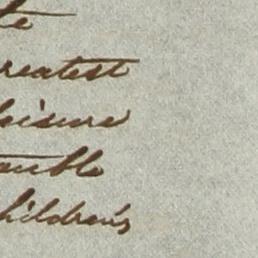 te
reatest
leisure
ouble
hildren's